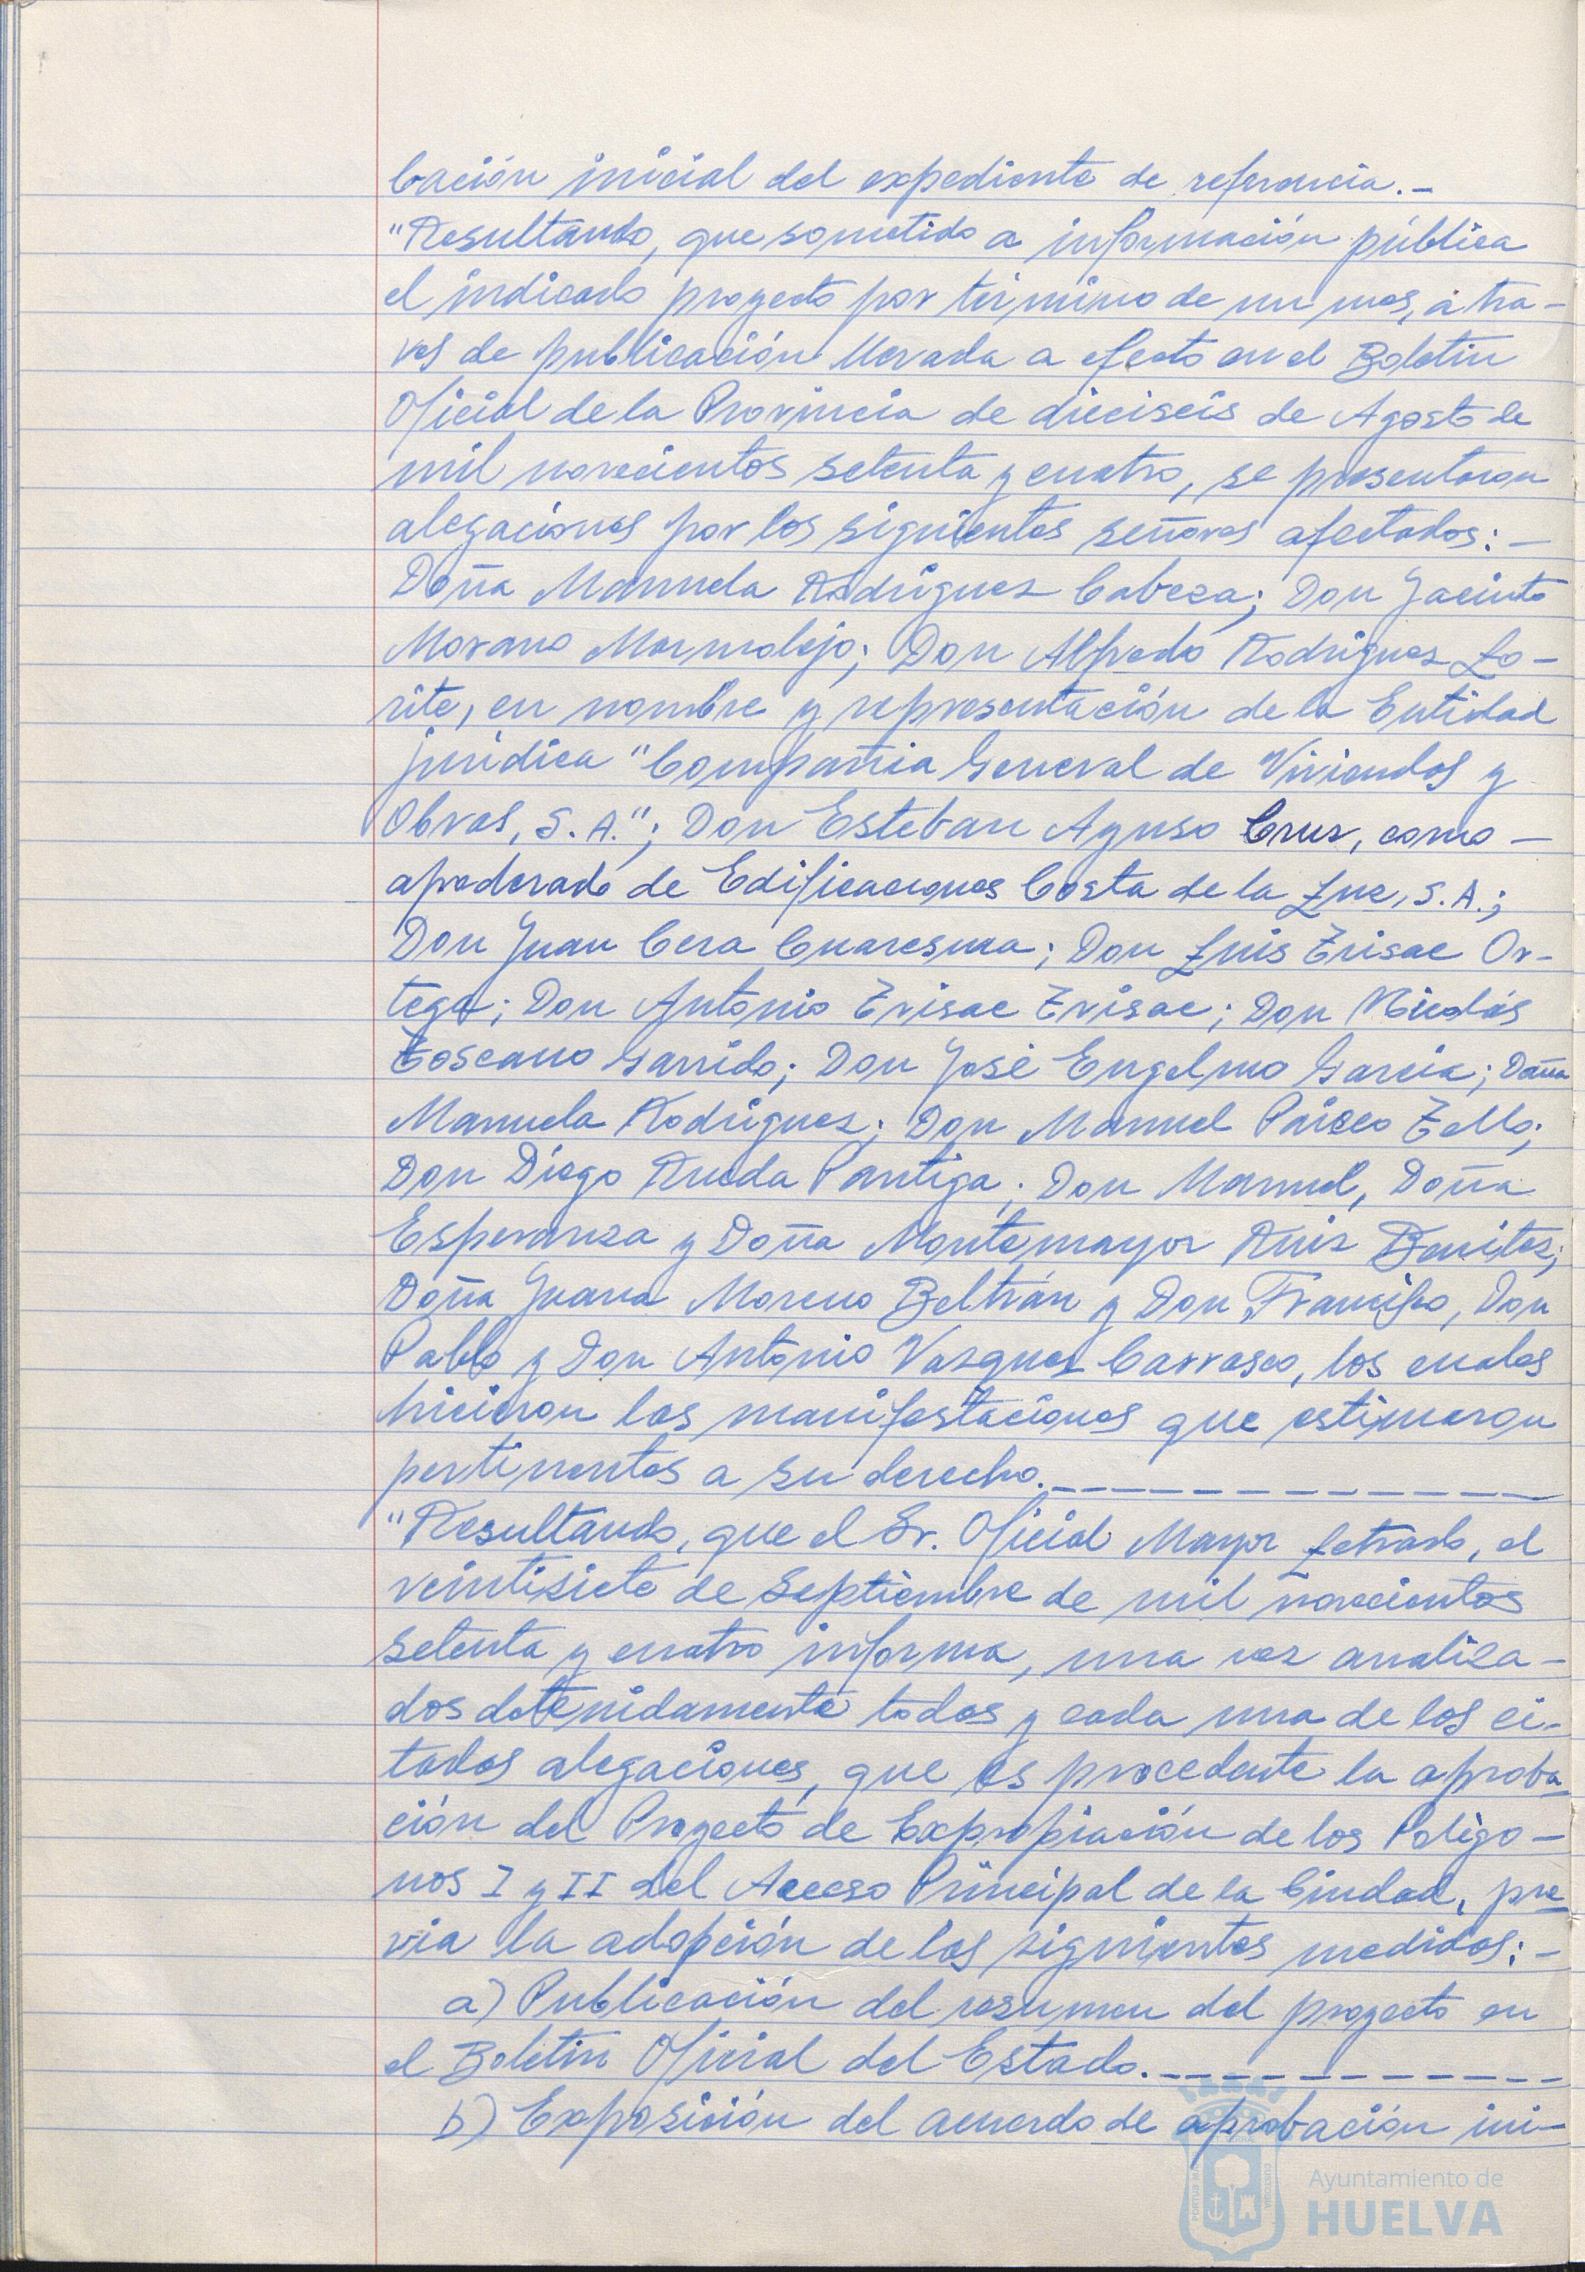 bación inicial del expediente de referencia.-
"Resultando, que sometido a información pública
el indicado proyecto por término de un mes, a tra-
ves de publicación llevada a efecto en el Boletin
Oficial de la Provincia de dieciseis de Agosto de
mil novecientos setenta y cuatro, se presentaron
alegaciones por los siguientes señores afectados:-
Doña Manuela Rodriguez Cabeza; Don Jacinto
Morano Marmolejo; Don Alfredo Rodriguez Lo-
rite, en nombre y representación de la Entidad
jurídica "Compañia General de Viviendas y
Obras, S.A."; Don Esteban Ayuso Cruz, como-
apoderado de Edificaciones Costa de la Luz, S.A.;
Don Juan Cera Cuaresma; Don Luis Trisac Or-
tega; Don Antonio Trisac Trisac; Don Nicolás
Toscano Garrido; Don José Engelmo Garcia; Doña
Manuela Rodriguez; Don Manuel Paizeo Tello;
Don Diego Rueda Pantiga; Don Manuel, Doña
Esperanza y Doña Montemayor Ruiz Benitez;
Doña Juana Moreno Beltrán y Don Francisco, Don
Pablo y Don Antonio Vazquez Carrasco, los cuales
hicieron las manifestaciones que estimaron
pertinentes a su derecho.-------------
"Resultando, que el Sr. Oficial Mayor Letrado, el
veintisiete de Septiembre de mil novecientos
setenta y cuatro informa, una vez analiza-
dos detenidamente todas y cada una de los ci-
tados alegaciones, que es procedente la aproba-
ción del Proyecto de Expropiación de los Poligo-
nos I y II del Acceso Principal de la Ciudad, pre-
via la adopción de las siguientes medidas:-
a) Publicación del resumen del proyecto en
el Boletin Oficial del Estado.------------
b) Exposición del acuerdo de aprobación ini-
Ayuntamiento de
HUELVA